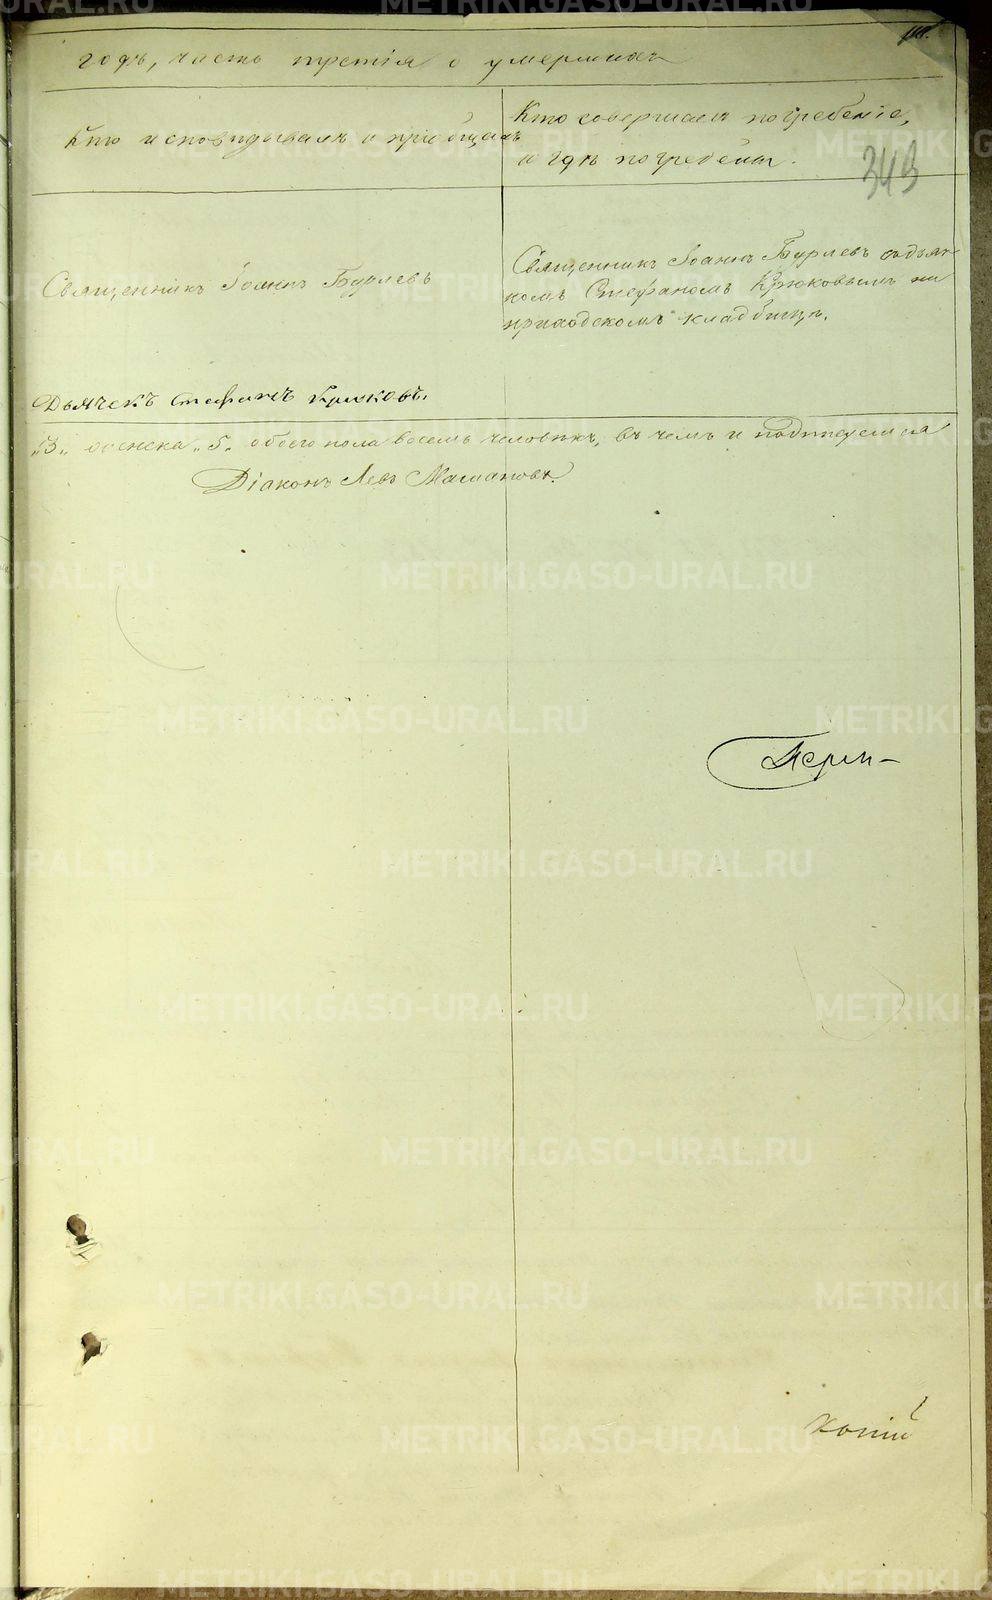 годъ, часть третія о умершихъ
Кто исповѣдывалъ и пріобщалъ
Кто совершалъ погребеніе,
и гдѣ погребены.
343
Священникъ Іоаннъ Бурлевъ
Священникъ Іоаннъ Бурлевъ съ дьяч-
комъ Стефаномъ Крюковымъ на
приходскомъ кладбищѣ.
Дьячекъ Стефанъ Крюковъ.
„3„ женска „5„ обоего пола восемь человѣкъ, въ чемъ и подписуемся
Діаконъ Левъ
Перм-
METRIKI.GASO-URAL.RU